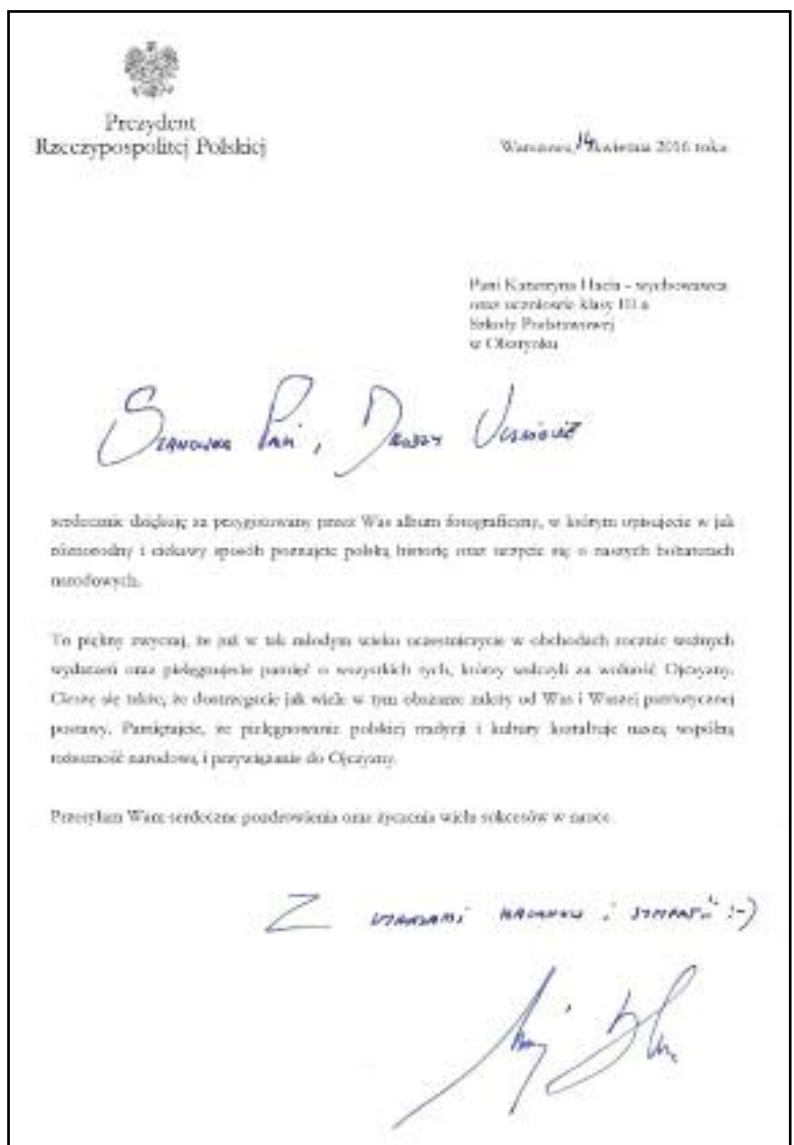 Prezydent
Rzeczypospolitej Polskiej
Warszawa, 14 kwietnia 2016 roku
Pani Katarzyna - wychowawca
oraz uczniowie klasy III a
Szkoły Podstawowej
w Olsztynku
Szanowna Pani, Drodzy Uczniowie
serdecznie dziękuję za przygotowany przez Was album fotograficzny, w którym opisujecie w jak
różnorodny i ciekawy sposób poznajecie polską historię oraz uczycie się o naszych bohaterach
narodowych.
To piękny zwyczaj, że już w tak młodym wieku uczestniczycie w obchodach rocznic ważnych
wydarzeń oraz pielęgnujecie pamięć o wszystkich tych, którzy walczyli za wolność Ojczyzny.
Cieszę się także, że dostrzegacie jak wiele w tym obszarze zależy od Was i Waszej patriotycznej
postawy. Pamiętajcie, że pielęgnowanie polskiej tradycji i kultury kształtuje naszą wspólną
tożsamość narodową i przywiązanie do Ojczyzny.
Przesyłam Wam serdeczne pozdrowienia oraz życzenia wielu sukcesów w nauce
Z wyrazami szacunku i sympatii :-)